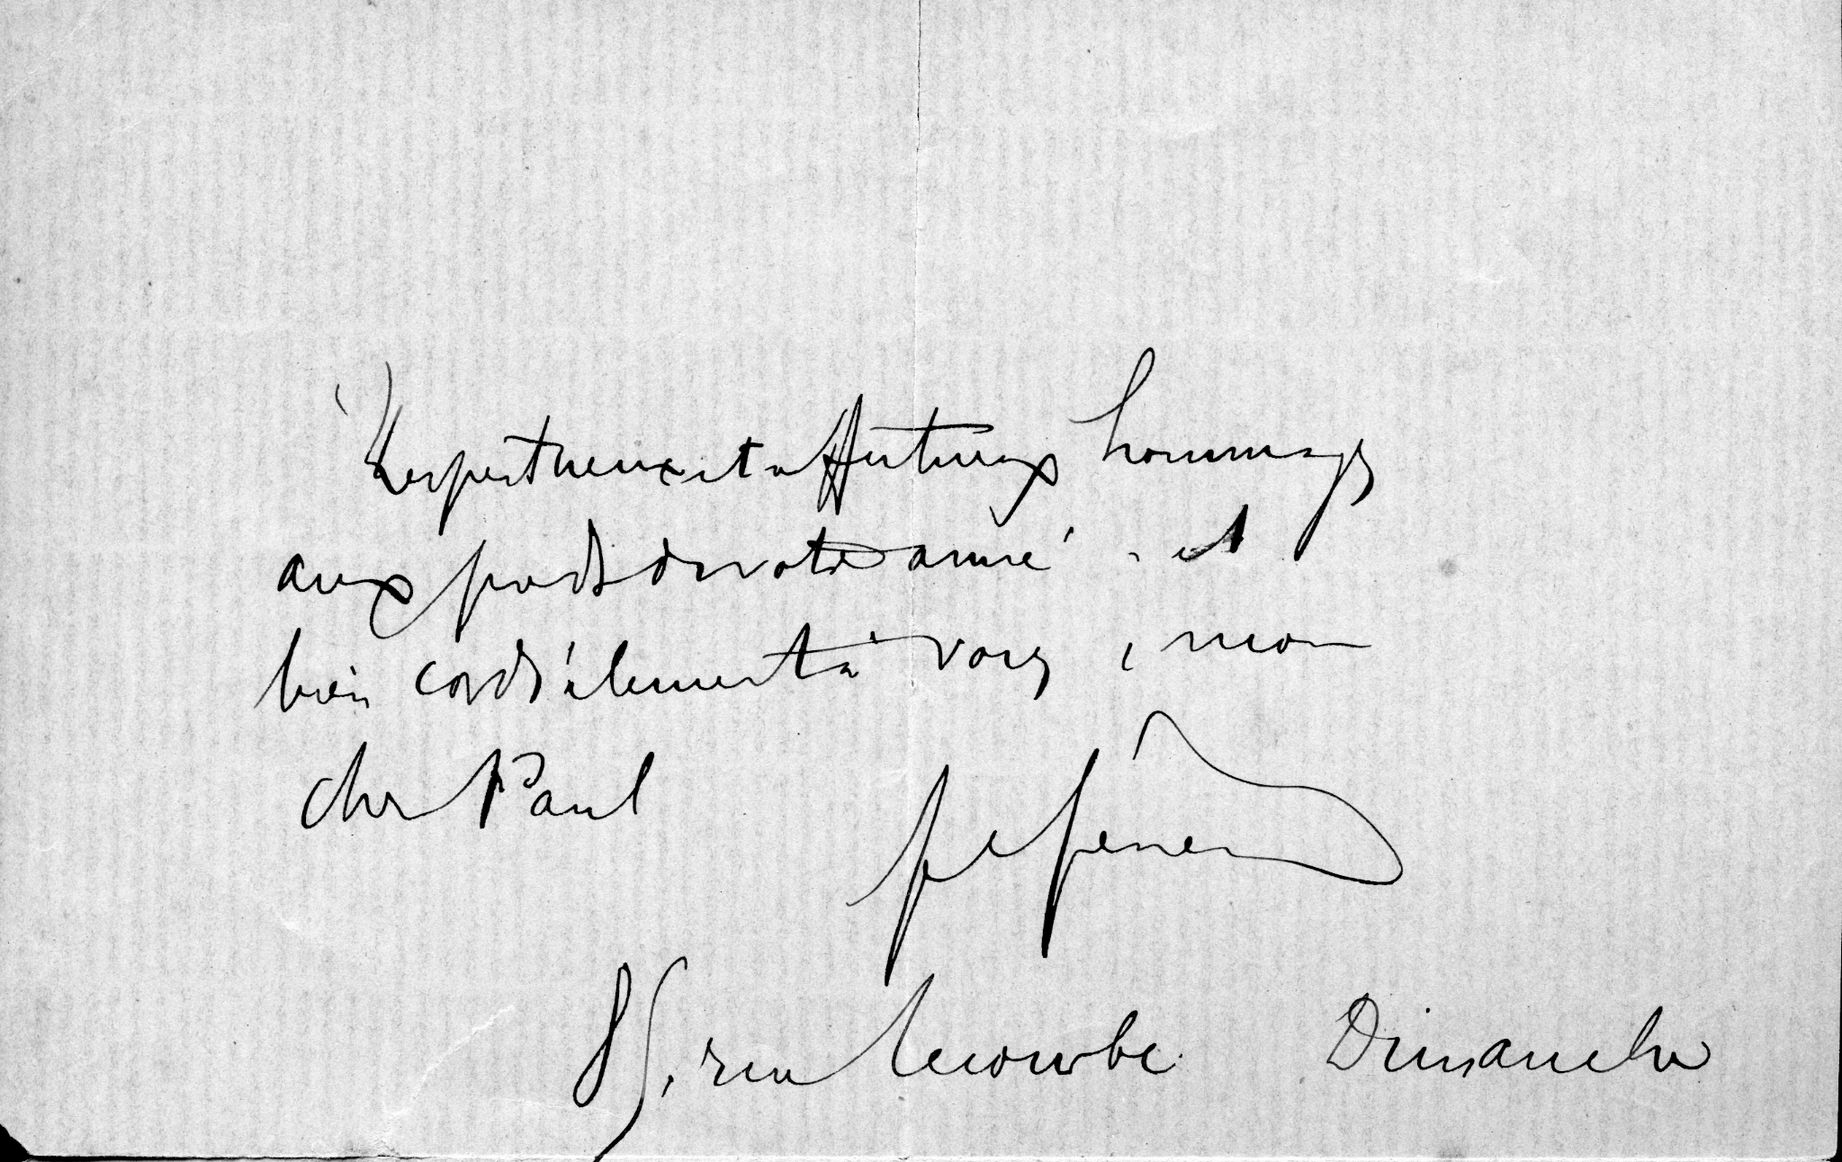 Respectueux et affectueux hommages
aux pieds de votre amie - et
bien cordialement à vous, mon
cher Paul
rue Lecourbe. Dimanche